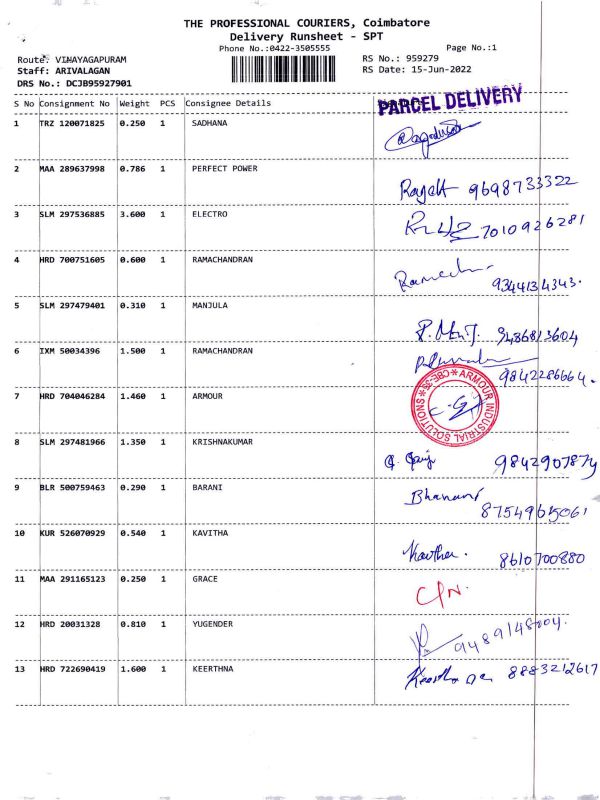 THE PROFESSIONAL COURIERS, Coimbatore
Delivery Runsheet - SPT
Phone No.:0422-3505555
Page No.:1
Route: VINAYAGAPURAM
RS No.: 959279
Staff: ARIVALAGAN
RS Date: 15-Jun-2022
DRS No.: DCJB95927901
S No Consignment No Weight PCS Consignee Details
PARCEL DELIVERY
1 TRZ 120071825 0.250 1 SADHANA
2 MAA 289637998 0.786 1 PERFECT POWER
9698733322
3 SLM 297536885 3.600 1 ELECTRO
7010926281
4 HRD 700751605 0.600 1 RAMACHANDRAN
9344134343.
5 SLM 297479401 0.310 1 MANJULA
9486813604
6 IXM 50034396 1.500 1 RAMACHANDRAN
9842286664.
7 HRD 704046284 1.460 1 ARMOUR
ARMOUR INDUSTRIAL SOLUTIONS * CBE-35 *
8 SLM 297481966 1.350 1 KRISHNAKUMAR
9842907874
9 BLR 500759463 0.290 1 BARANI
8754965061
10 KUR 526070929 0.540 1 KAVITHA
Kavitha. 8610700880
11 MAA 291165123 0.250 1 GRACE
12 HRD 20031328 0.810 1 YUGENDER
9489148004.
13 HRD 722690419 1.600 1 KEERTHNA
8883212617